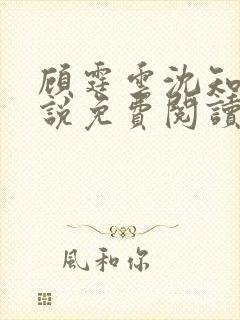 顾霆雲沈知
說免費閱讀
風和你